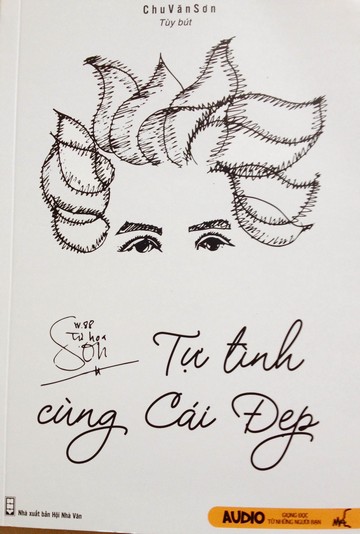 Chu Văn Sơn
Tùy bút
W.98
Tự họa
Sơn
Tự tình
cùng Cái Đẹp
Nhà xuất bản Hội Nhà Văn
AUDIO
GIỌNG ĐỌC
TỪ NHỮNG NGƯỜI BẠN